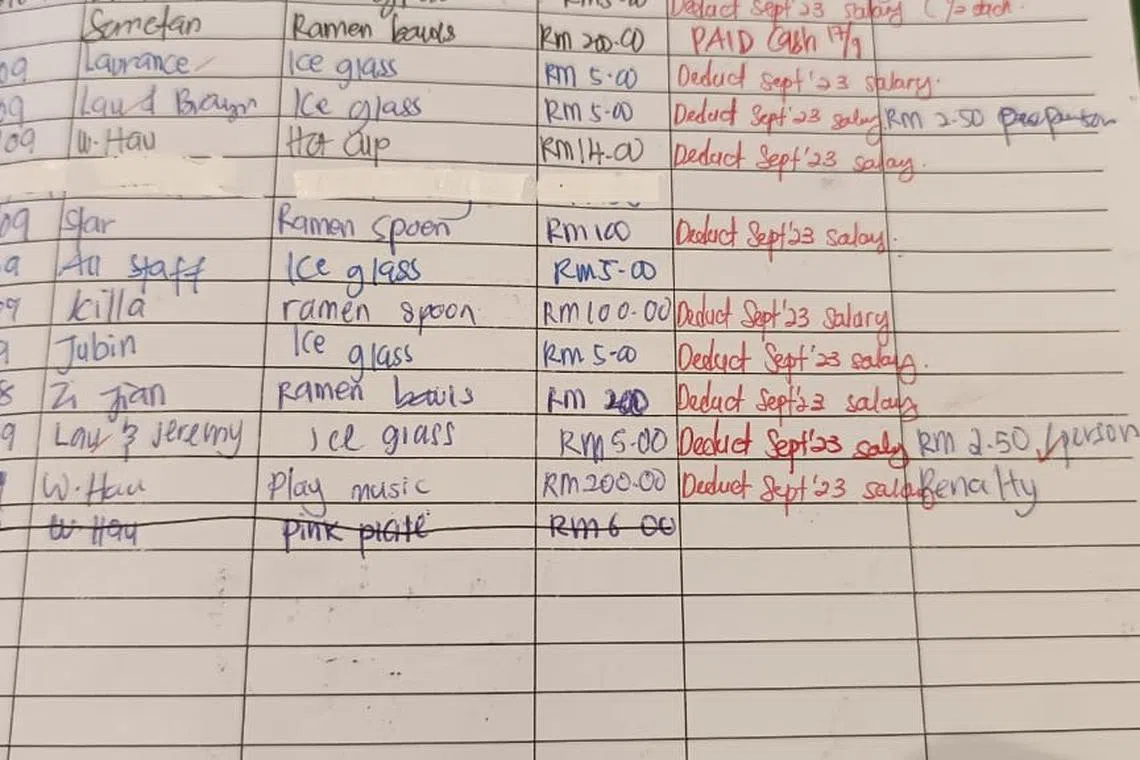 Deduct Sept'23 salary (1/2 each.
Sometan Ramen bowls RM 200.00 PAID Cash 17/9
09 Laurance Ice glass RM 5.00 Deduct Sept'23 salary.
9 Lau & Ice glass RM 5.00 Deduct Sept'23 salary RM 2.50 per person
09 W.Hau Hot Cup RM14.00 Deduct Sept'23 salay.
09 Star Ramen spoon RM100 Deduct Sept'23 salay.
9 All staff Ice glass RM5-00
9 Killa ramen spoon RM100.00 Deduct Sept'23 salary
9 Jubin Ice glass RM 5-00 Deduct Sept'23 salary.
8 Zi Jian Ramen bowls RM 200 Deduct Sept'23 salary
9 Lau & Jeremy Ice glass RM5.00 Deduct Sept'23 saly RM 2.50 /person
W.Hau Play music RM200.00 Deduct Sept'23 salay Penalty
W.Hau pink plate RM6 00